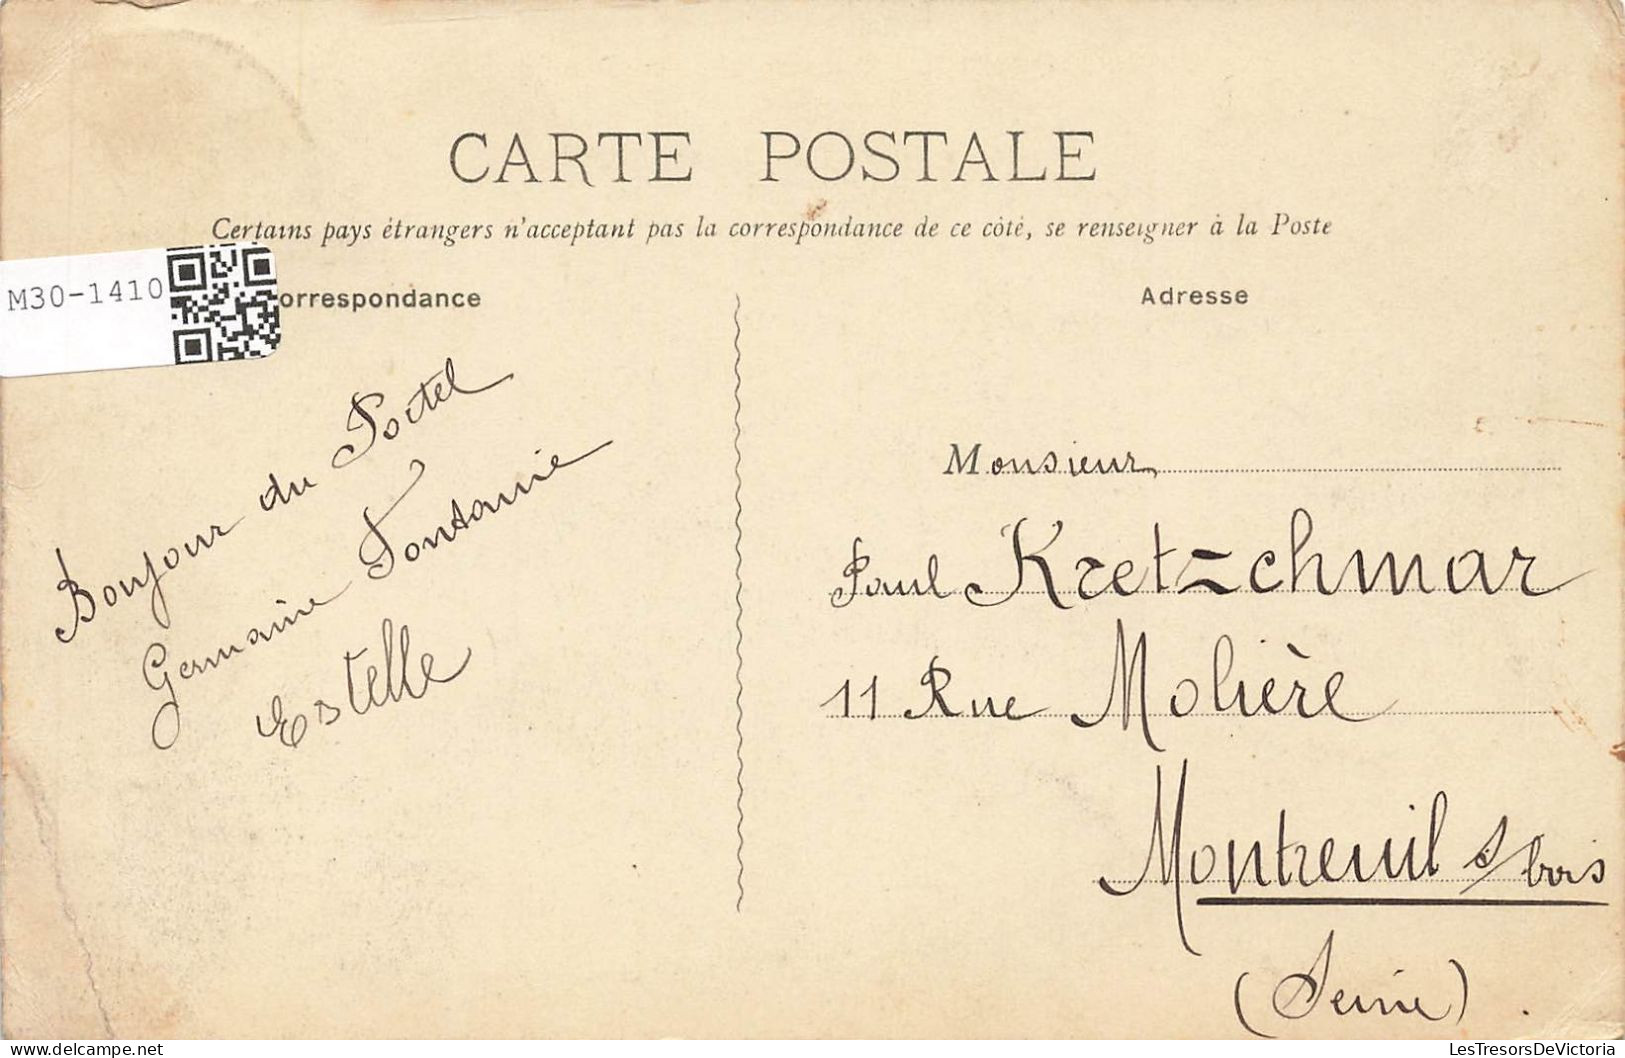 CARTE POSTALE
Certains pays étrangers n'acceptant pas la correspondance de ce côté, se renseigner à la Poste
M30-1410
orrespondance
Adresse
Bonjour du Portel
Germaine Fontaine
Estelle
Monsieur
Paul Kretzchmar
11 Rue Molière
Montreuil s/ bois
(Seine).
LesTresorsDeVictoria